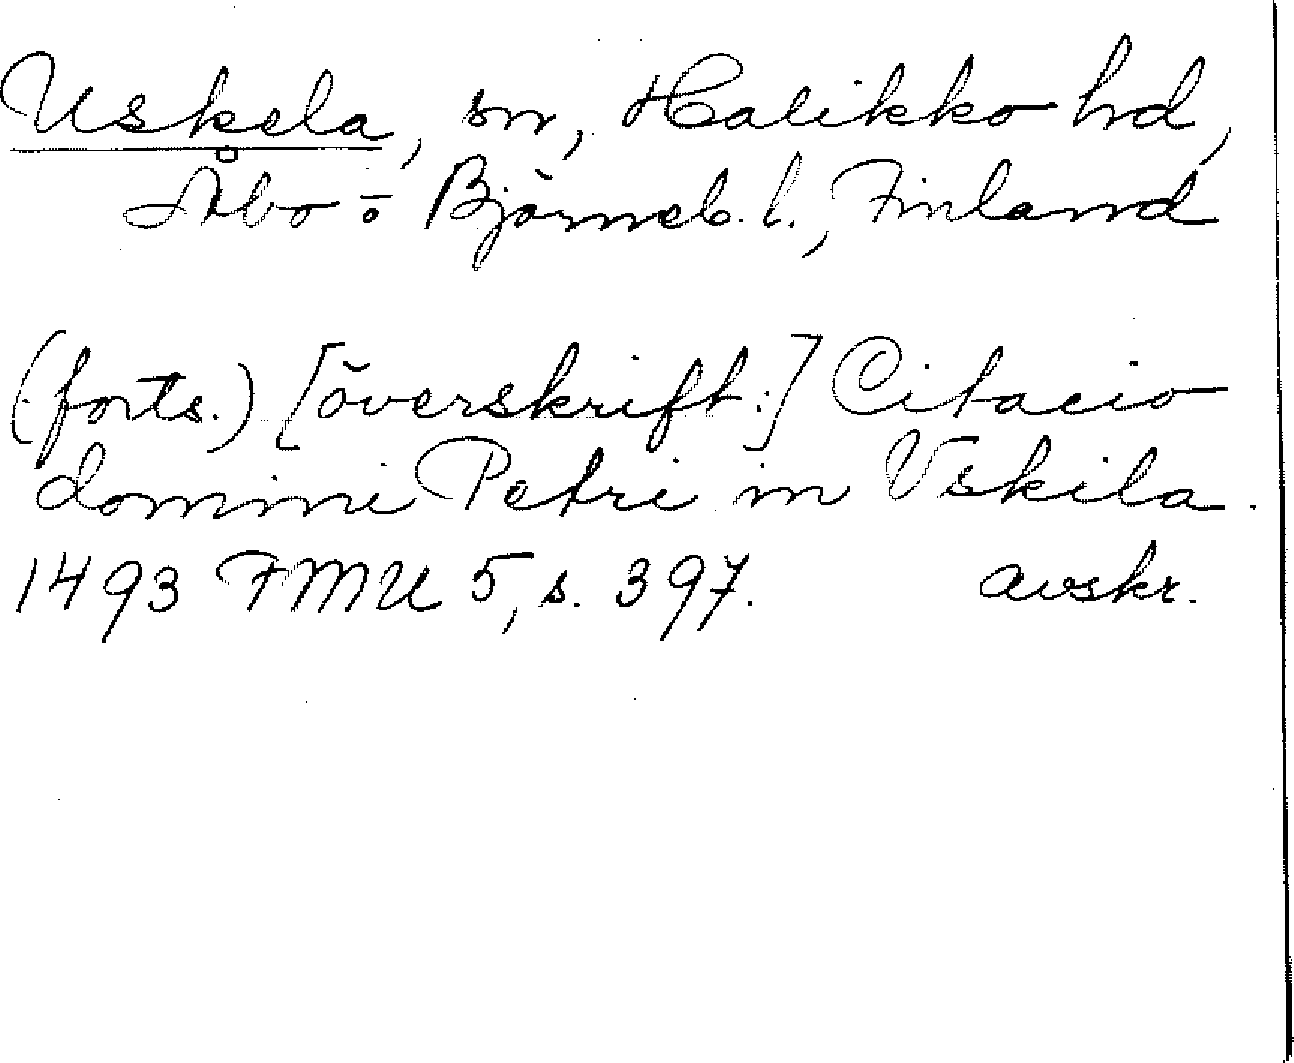 Uskela, sn, Halikko hd,
Åbo o Björneb. l., Finland
(forts.) [överskrift:] Citacio
domini Petri in Vskila.
1493 FMU 5, s. 397. avskr.